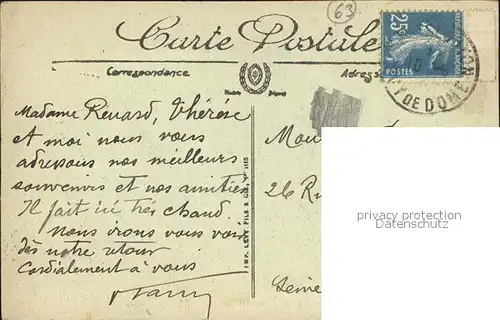 63
Carte Postale
Correspondance
Adress
25c
POSTES
Y DE DOME
Madame Renard, Thérèse
et moi nous vous
adressons nos meilleurs
souvenirs et nos amitiés
Il fait ici très chaud.
Nous irons vous voir
dès notre retour
Cordialement à vous
IMP. LEVY FILS & CIE,
Mon
26 Ru
Seine
privacy protection
Datenschutz